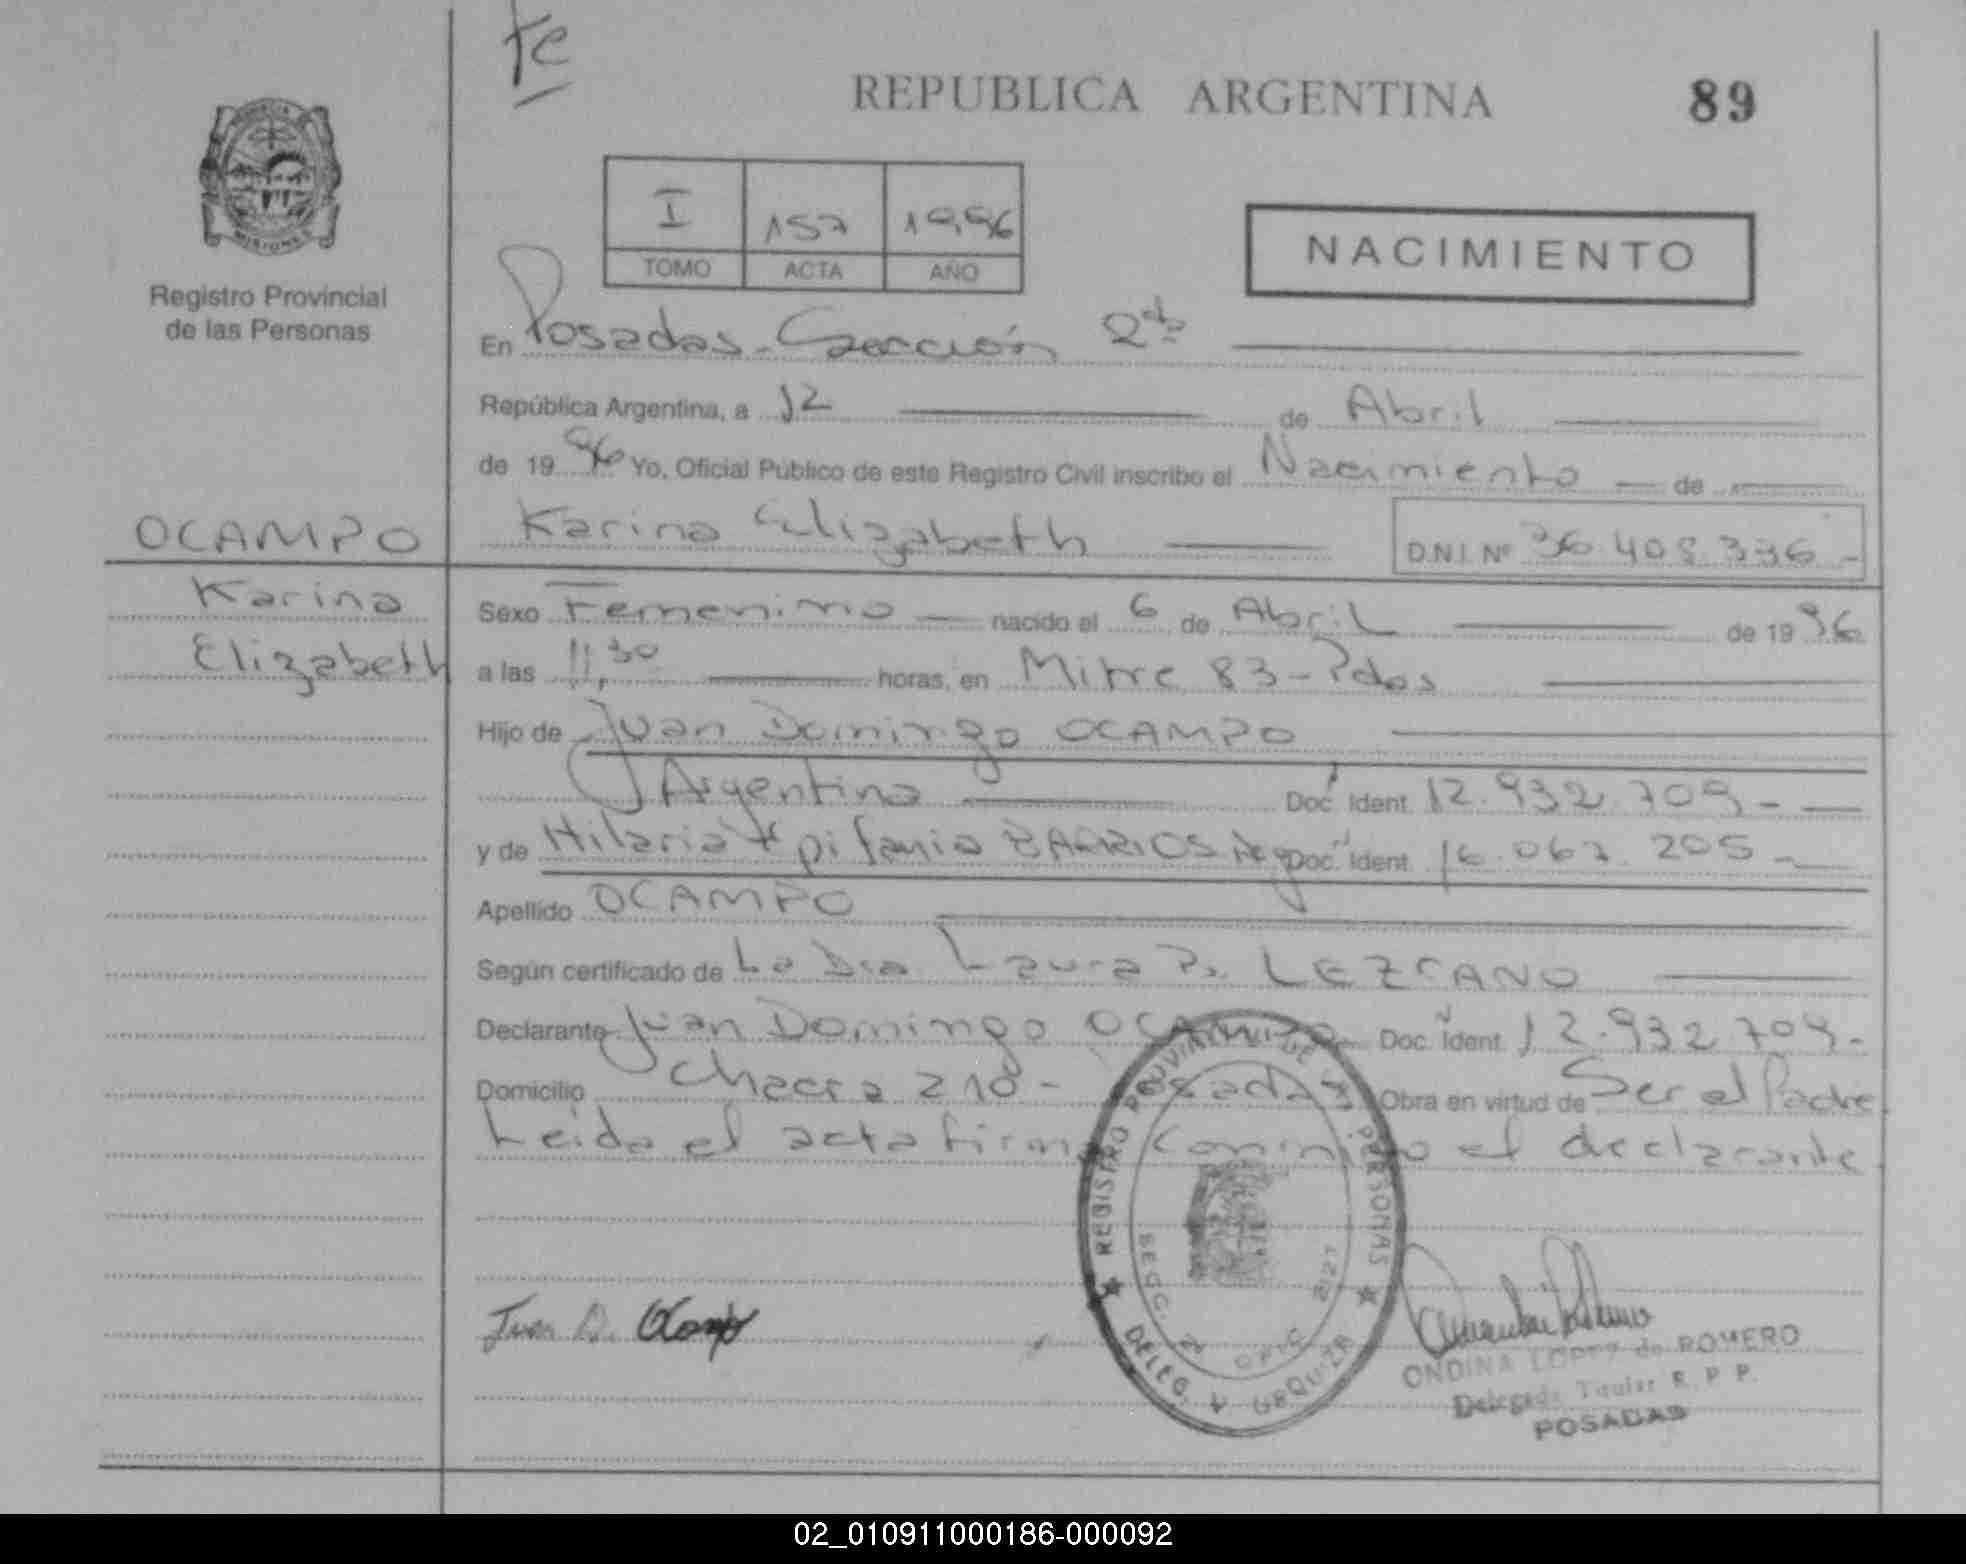 fe
REPUBLICA ARGENTINA
89
PROVINCIA
MISIONES
Registro Provincial
de las Personas
I 157 1996
TOMO ACTA AÑO
NACIMIENTO
En Posadas - Sección 2da
República Argentina, a 12 de Abril
de 1996 Yo, Oficial Público de este Registro Civil inscribo el Nacimiento de
OCAMPO
Karina Elizabeth D.N.I. Nº 36.408.336-
Karina
Elizabeth
Sexo Femenimo nacido el 6 de Abril de 1996
a las 11,30 horas, en Mitre 83 - Pdas
Hijo de Juan Domingo OCAMPO
Argentino Doc. Ident. 12.932.709-
y de Hilaria Epifania BARRIOS Arg Doc. Ident. 16.067.205-
Apellido OCAMPO
Según certificado de La Dra Laura P. LEZCANO
Declarante Juan Domingo OCAMPO Doc. Ident. 12.932.709-
Domicilio Chacra 210 - Posadas Obra en virtud de Ser el Padre
Leida el acta firma conmigo el declarante.
REGISTRO PROVINCIAL DE LAS PERSONAS
SECC. 2 OFIC 2127
DELEG. URQUIZA
Juan D. Ocampo
ONDINA LOPEZ de ROMERO
Delegada Titular R. P. P.
POSADAS
02_010911000186-000092